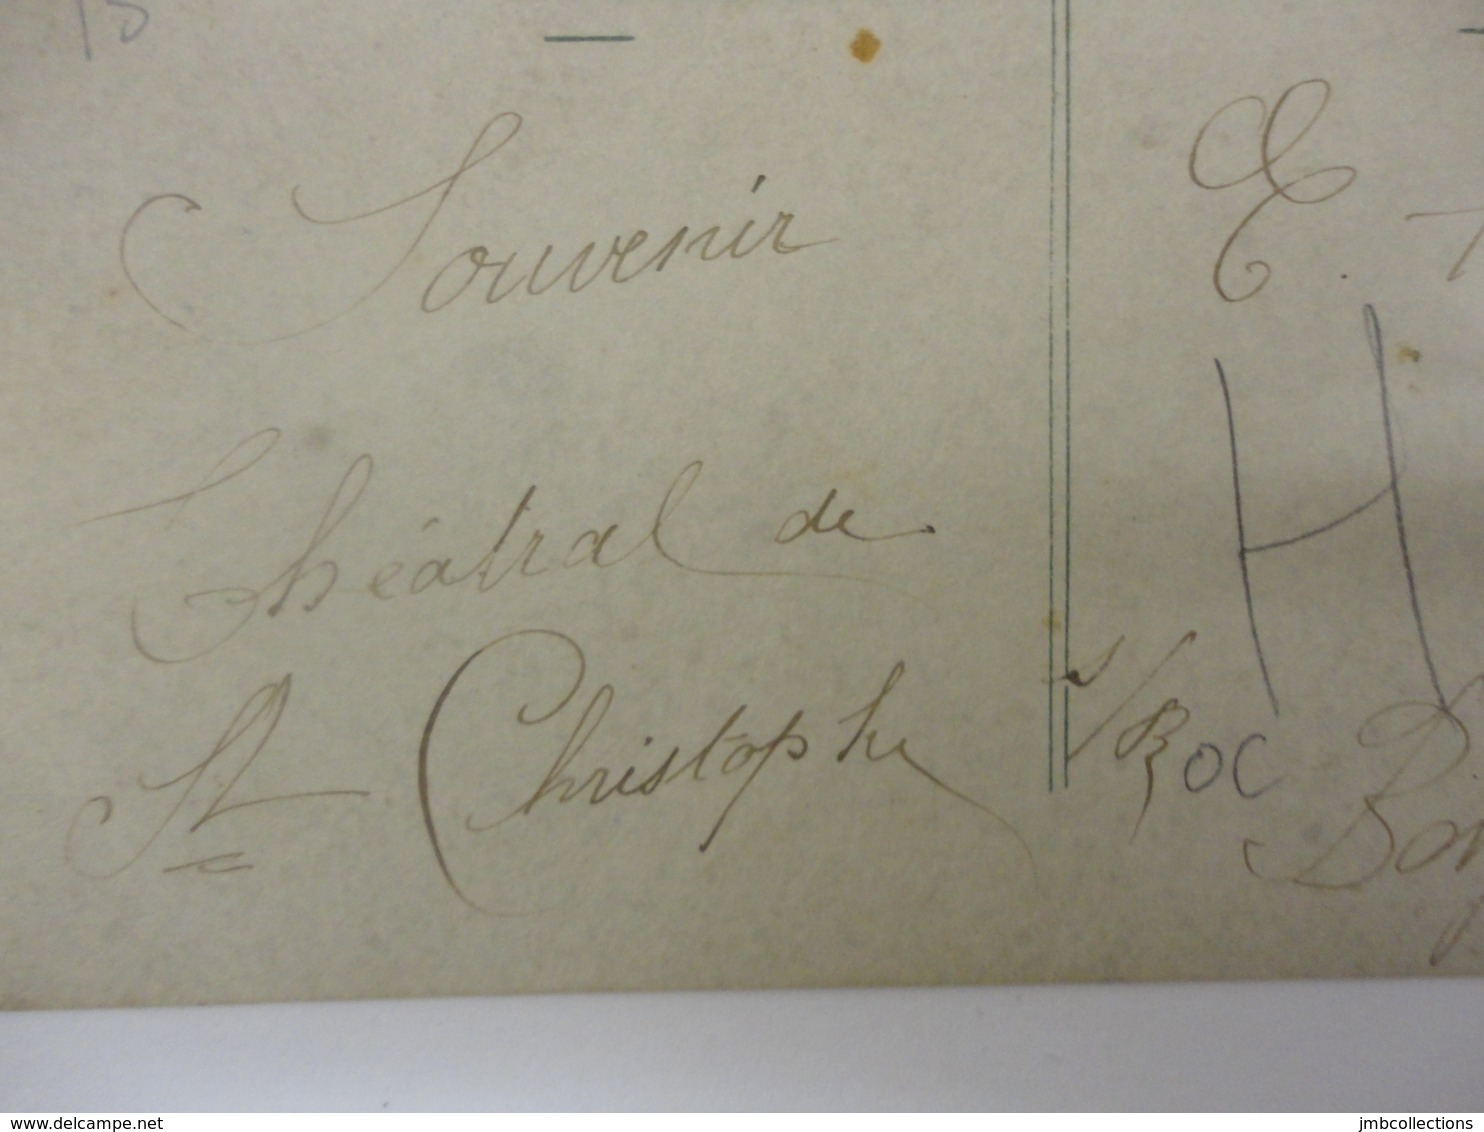 Souvenir
Théâtral de
St Christophe s/Roc
E.
H
delcampe.net
jmbcollections